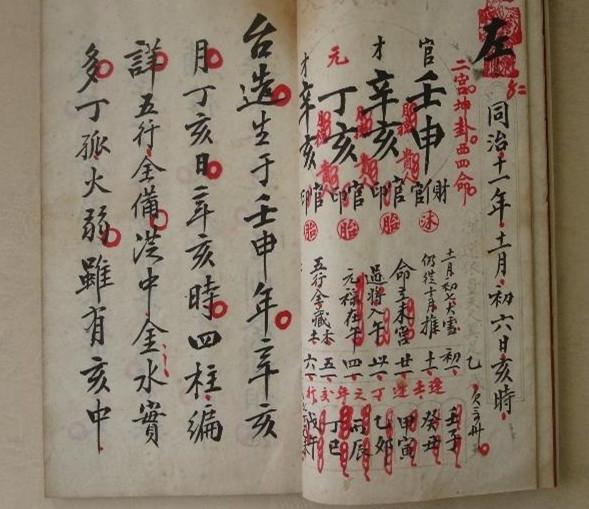 左
同治十一年十一月初六日亥時
二宮坤卦西四命
官 壬申
才 辛亥
元 丁亥
才 辛亥
財官
官印
官印
官印
沐
胎
胎
胎
十一月初七大雪
仍從十月推
命主未宮
過將入午
元祿在午
初一
十一
廿一
卅一
四一
五一
六一
壬子
癸丑
甲寅
乙卯
丙辰
丁巳
戊午
台造生于壬申年辛亥
月丁亥日辛亥時四柱編
詳五行全備洪中金水實
多丁孤火弱雖有亥中